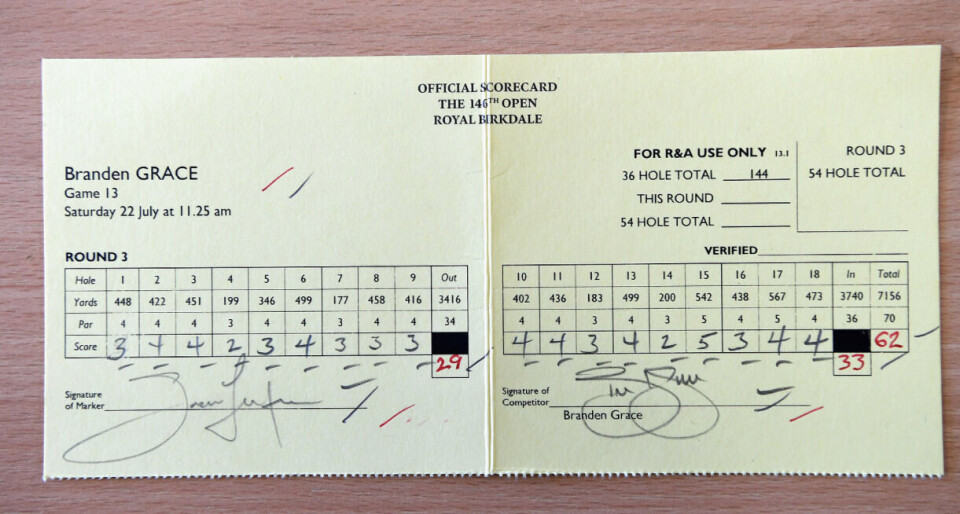 OFFICIAL SCORECARD
THE 146TH OPEN
ROYAL BIRKDALE
Branden GRACE
Game 13
Saturday 22 July at 11.25 am
FOR R&A USE ONLY 13.1
36 HOLE TOTAL 144
THIS ROUND
54 HOLE TOTAL
ROUND 3
54 HOLE TOTAL
VERIFIED
ROUND 3
Hole 1 2 3 4 5 6 7 8 9 Out 10 11 12 13 14 15 16 17 18 In Total
Yards 448 422 451 199 346 499 177 458 416 3416 402 436 183 499 200 542 438 567 473 3740 7156
Par 4 4 4 3 4 4 3 4 4 34 4 4 3 4 3 5 4 5 4 36 70
Score 3 4 4 2 3 4 3 3 3 4 4 3 4 2 5 3 4 4 62
29 33
Signature
of Marker
Signature of
Competitor
Branden Grace